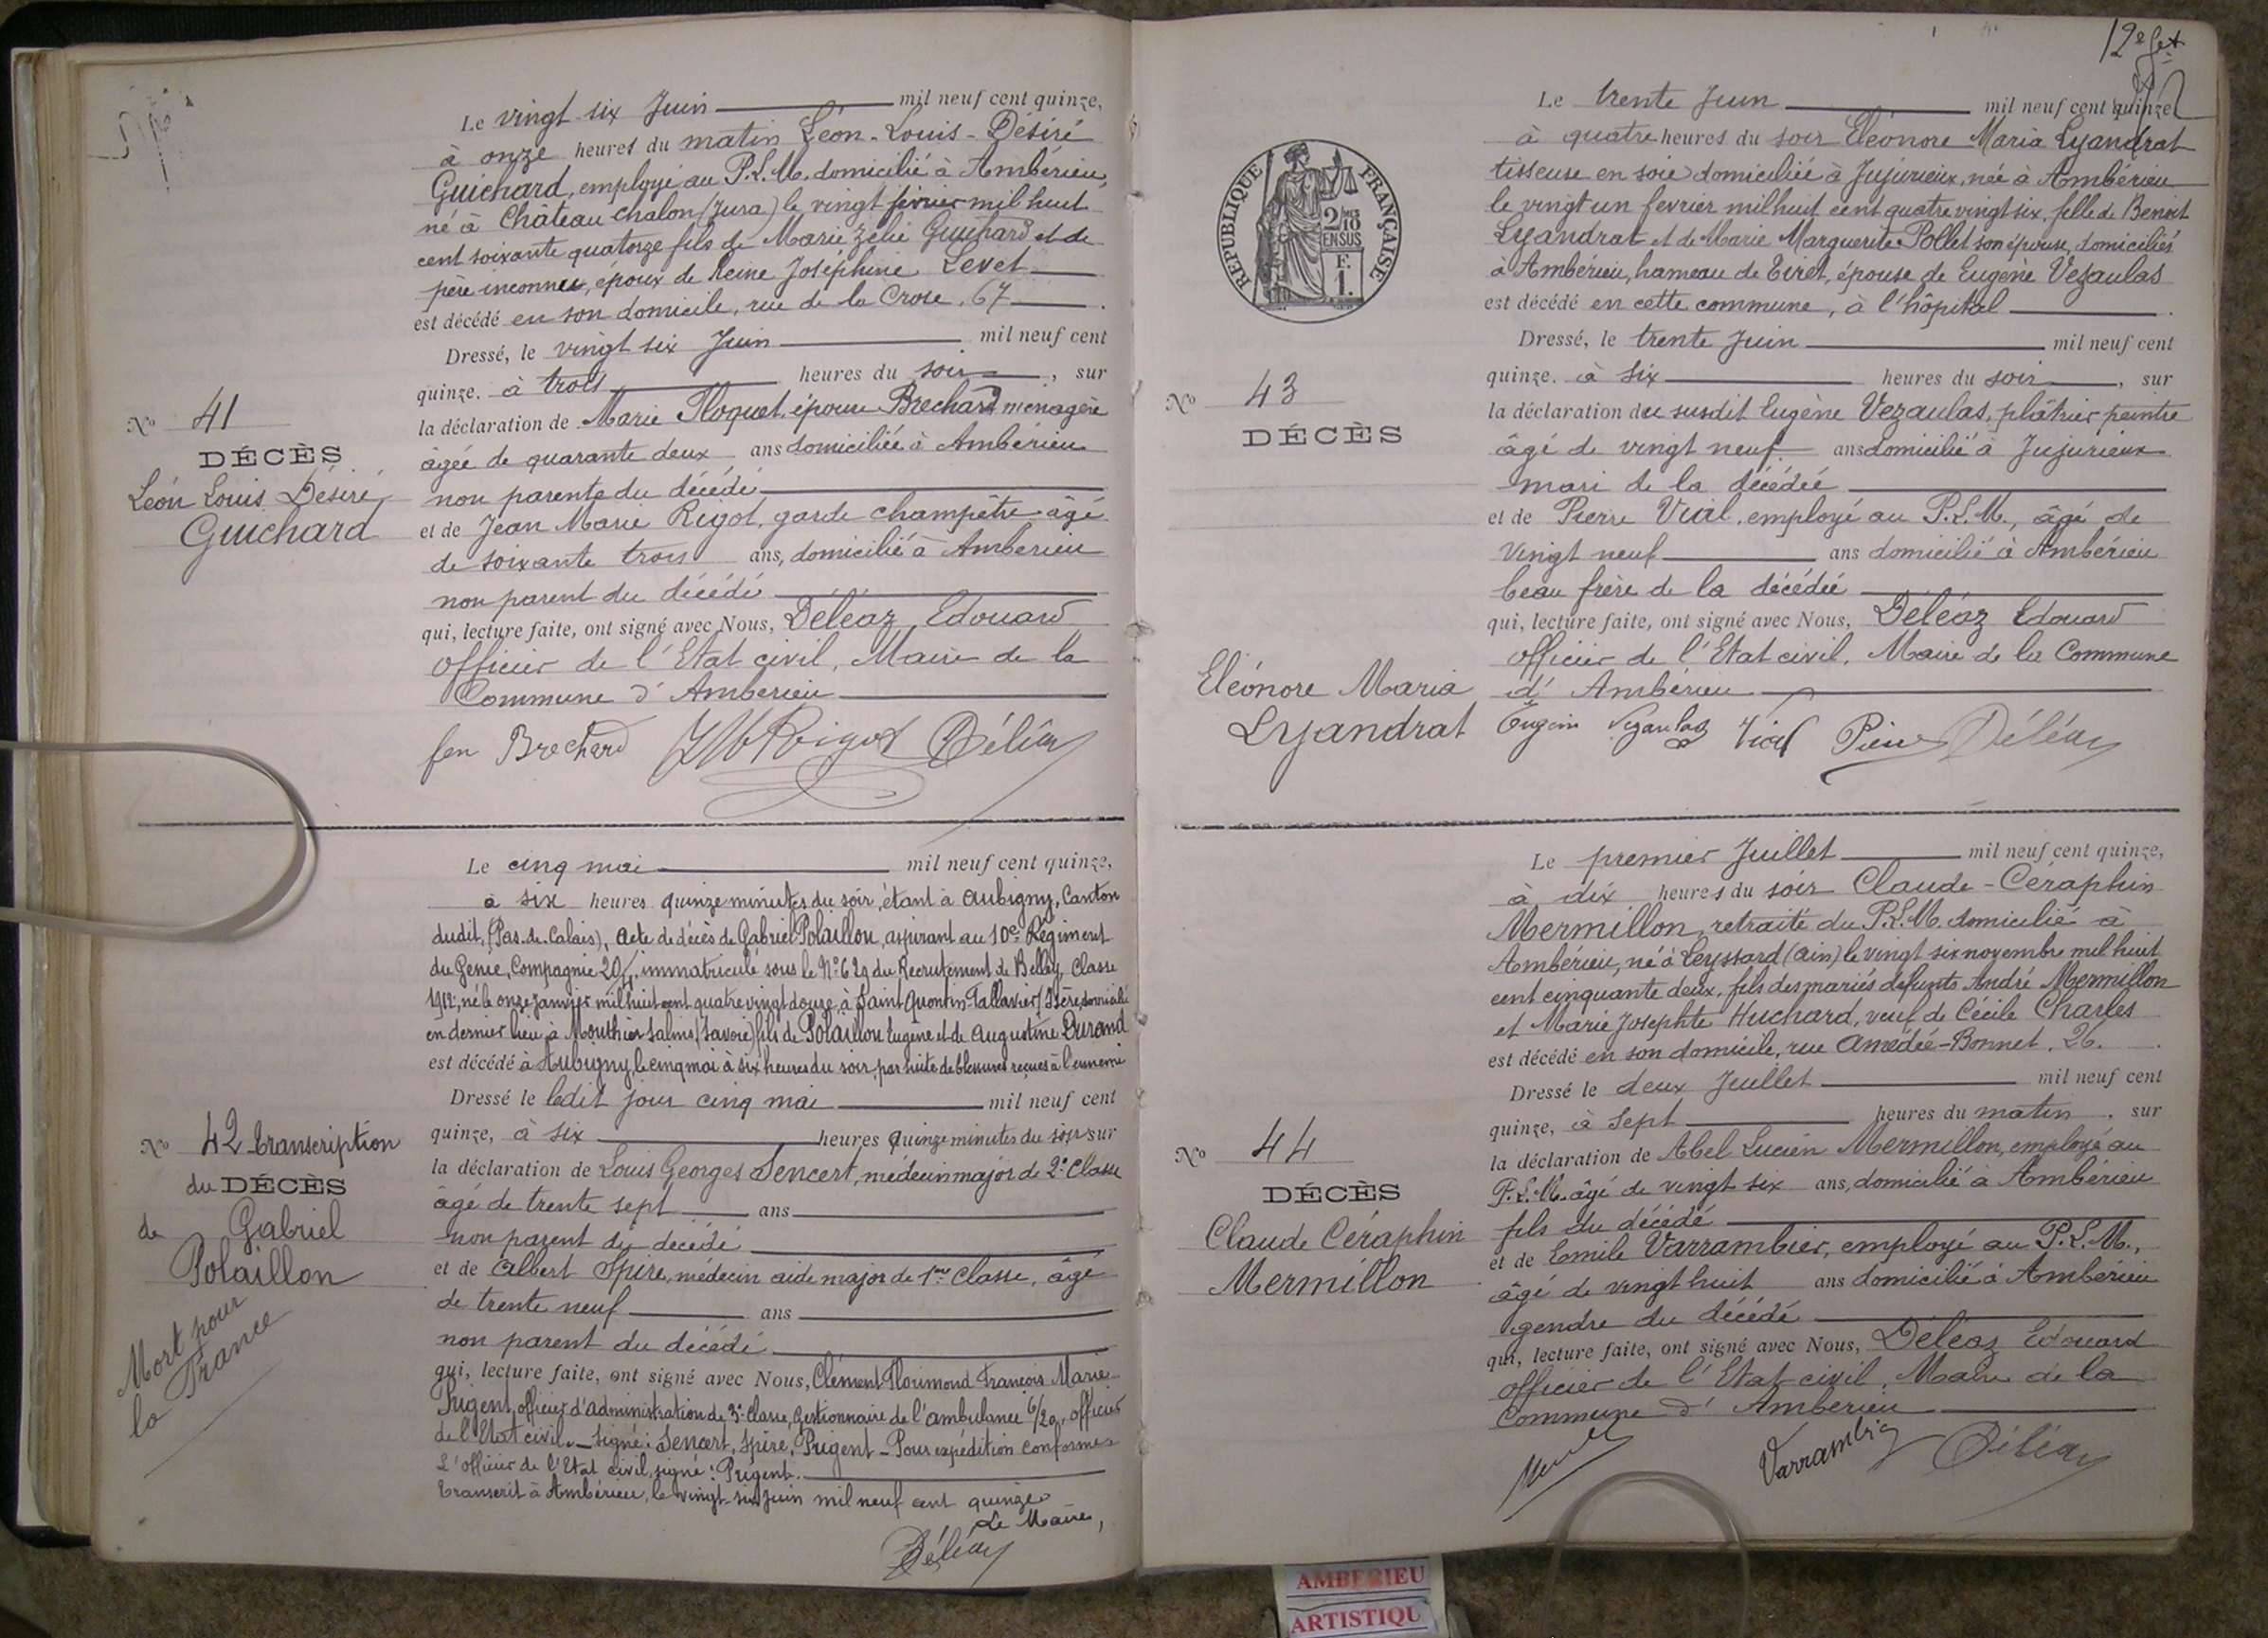 Le vingt six Juin mil neuf cent quinze,
à onze heures du matin Léon-Louis-Désiré
Guichard, employé au P.L.M. domicilié à Ambérieu,
né à Château chalon (Jura) le vingt février mil huit
cent soixante quatorze fils de Marie Zélie Guichard et de
père inconnu, époux de Reine Joséphine Levet
est décédé en son domicile, rue de la Croze, 67.
Dressé, le vingt six Juin mil neuf cent
quinze, à trois heures du soir, sur
la déclaration de Marie Floquet, épouse Brechard ménagère
âgée de quarante deux ans domiciliée à Ambérieu
non parente du décédé
et de Jean Marie Rigot, garde champêtre âgé
de soixante trois ans, domicilié à Ambérieu
non parent du décédé
qui, lecture faite, ont signé avec Nous, Déléaz Edouard
officier de l'Etat civil, Maire de la
Commune d'Ambérieu
fem Brechard JM Rigot Déléaz
No 41
DÉCÈS
Léon Louis Désiré
Guichard
Le cinq mai mil neuf cent quinze,
à six heures quinze minutes du soir, étant à Aubigny, Canton
dudit, (Pas-de-Calais), Acte de décès de Gabriel Polaillon, aspirant au 10e Régiment
du Génie, Compagnie 20/4, immatriculé sous le No 629 du Recrutement de Belley, Classe
1912, né le onze janvier mil huit cent quatre vingt douze, à Saint Quentin-Fallavier (Isère) domicilié
en dernier lieu à Mouthier Salins (Savoie) fils de Polaillon Eugène et de Augustine Durand
est décédé à Aubigny, le cinq mai à six heures du soir, par suite de blessures reçues à l'ennemi
Dressé le ledit jour cinq mai mil neuf cent
quinze, à six heures quinze minutes du soir sur
la déclaration de Louis Georges Sencert, médecin major de 2e Classe
âgé de trente sept ans
non parent du décédé
et de Albert Spire, médecin aide major de 1ère Classe, âgé
de trente neuf ans
non parent du décédé
qui, lecture faite, ont signé avec Nous, Clément Florimond François Marie
Prigent, officier d'administration de 3e Classe, Gestionnaire de l'ambulance 6/20, officier
de l'Etat civil. - Signé: Sencert, Spire, Prigent - Pour expédition conforme
L'officier de l'Etat civil, signé: Prigent.
Transcrit à Ambérieu, le vingt-six Juin mil neuf cent quinze
Le Maire,
Déléaz
No 42 transcription
du DÉCÈS
de Gabriel
Polaillon
Mort pour
la France
12e fet
RÉPUBLIQUE FRANÇAISE
2/10
EN SUS
F.
1.
Le trente Juin mil neuf cent quinze
à quatre heures du soir Eléonore Maria Lyandrat
tisseuse en soie domiciliée à Jujurieux, née à Ambérieu
le vingt un fevrier mil huit cent quatre vingt six, fille de Benoit
Lyandrat et de Marie Marguerite Pollet son épouse, domiciliés
à Ambérieu, hameau de Tiret, épouse de Eugène Vezaulas
est décédé en cette commune, à l'hôpital.
Dressé, le trente Juin mil neuf cent
quinze, à six heures du soir, sur
la déclaration du susdit Eugène Vezaulas, plâtrier peintre
âgé de vingt neuf ans domicilié à Jujurieux
mari de la décédée
et de Pierre Vial, employé au P.L.M., âgé de
vingt neuf ans domicilié à Ambérieu
beau frère de la décédée
qui, lecture faite, ont signé avec Nous, Déléaz Edouard
officier de l'Etat civil, Maire de la Commune
d'Ambérieu
Eugein Vezaulas Vial Pierre Déléaz
No 43
DÉCÈS
Eléonore Maria
Lyandrat
Le premier Juillet mil neuf cent quinze,
à dix heures du soir Claude-Céraphin
Mermillon, retraité du P.L.M. domicilié à
Ambérieu, né à Leyssard (Ain) le vingt six novembre mil huit
cent cinquante deux, fils des mariés défunts André Mermillon
et Marie Josephte Huchard, veuf de Cécile Charles
est décédé en son domicile, rue Amédée-Bonnet, 26.
Dressé le deux Juillet mil neuf cent
quinze, à sept heures du matin, sur
la déclaration de Abel Lucien Mermillon, employé au
P.L.M. âgé de vingt six ans, domicilié à Ambérieu
fils du décédé
et de Emile Varrambier, employé au P.L.M.,
âgé de vingt huit ans domicilié à Ambérieu
gendre du décédé
qui, lecture faite, ont signé avec Nous, Déléaz Edouard
officier de l'Etat civil, Maire de la
Commune d'Ambérieu
Varrambier Déléaz
No 44
DÉCÈS
Claude Céraphin
Mermillon
AMBERIEU
ARTISTIQU